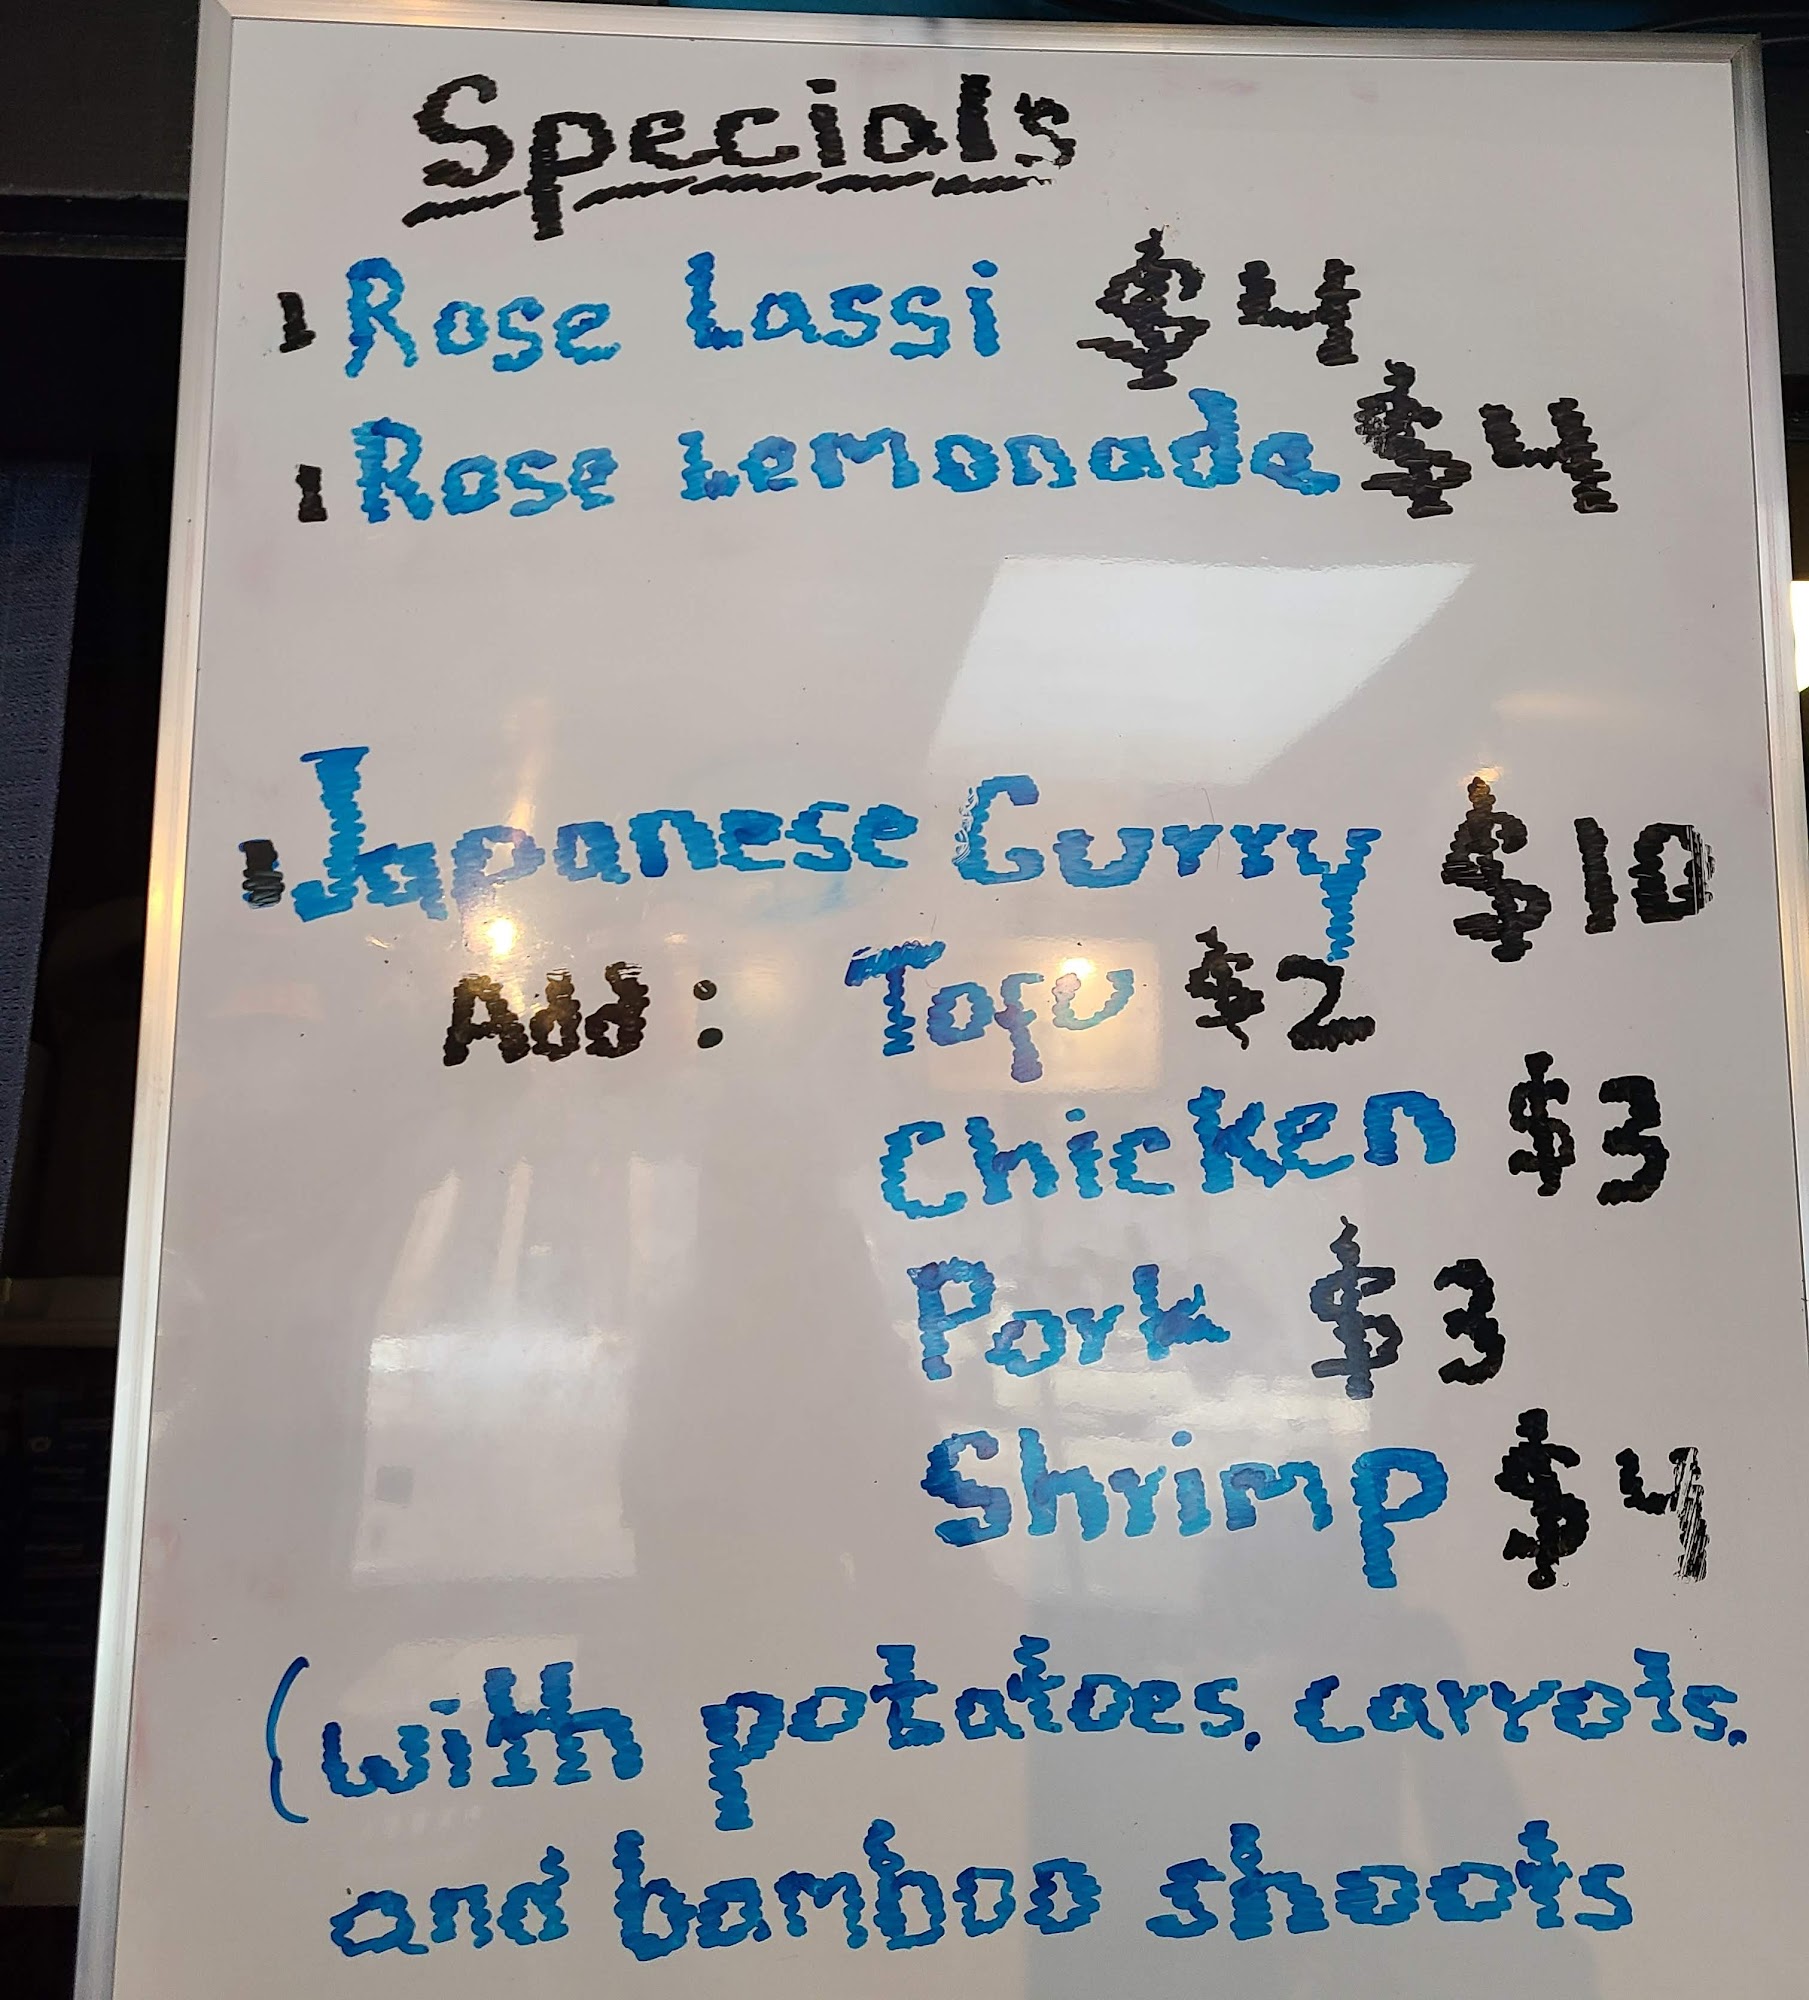 Specials
Rose Lassi $4
Rose Lemonade $4
Japanese Curry $10
Add: Tofu $2
Chicken $3
Pork $3
Shrimp $4
(with potatoes, carrots,
and bamboo shoots